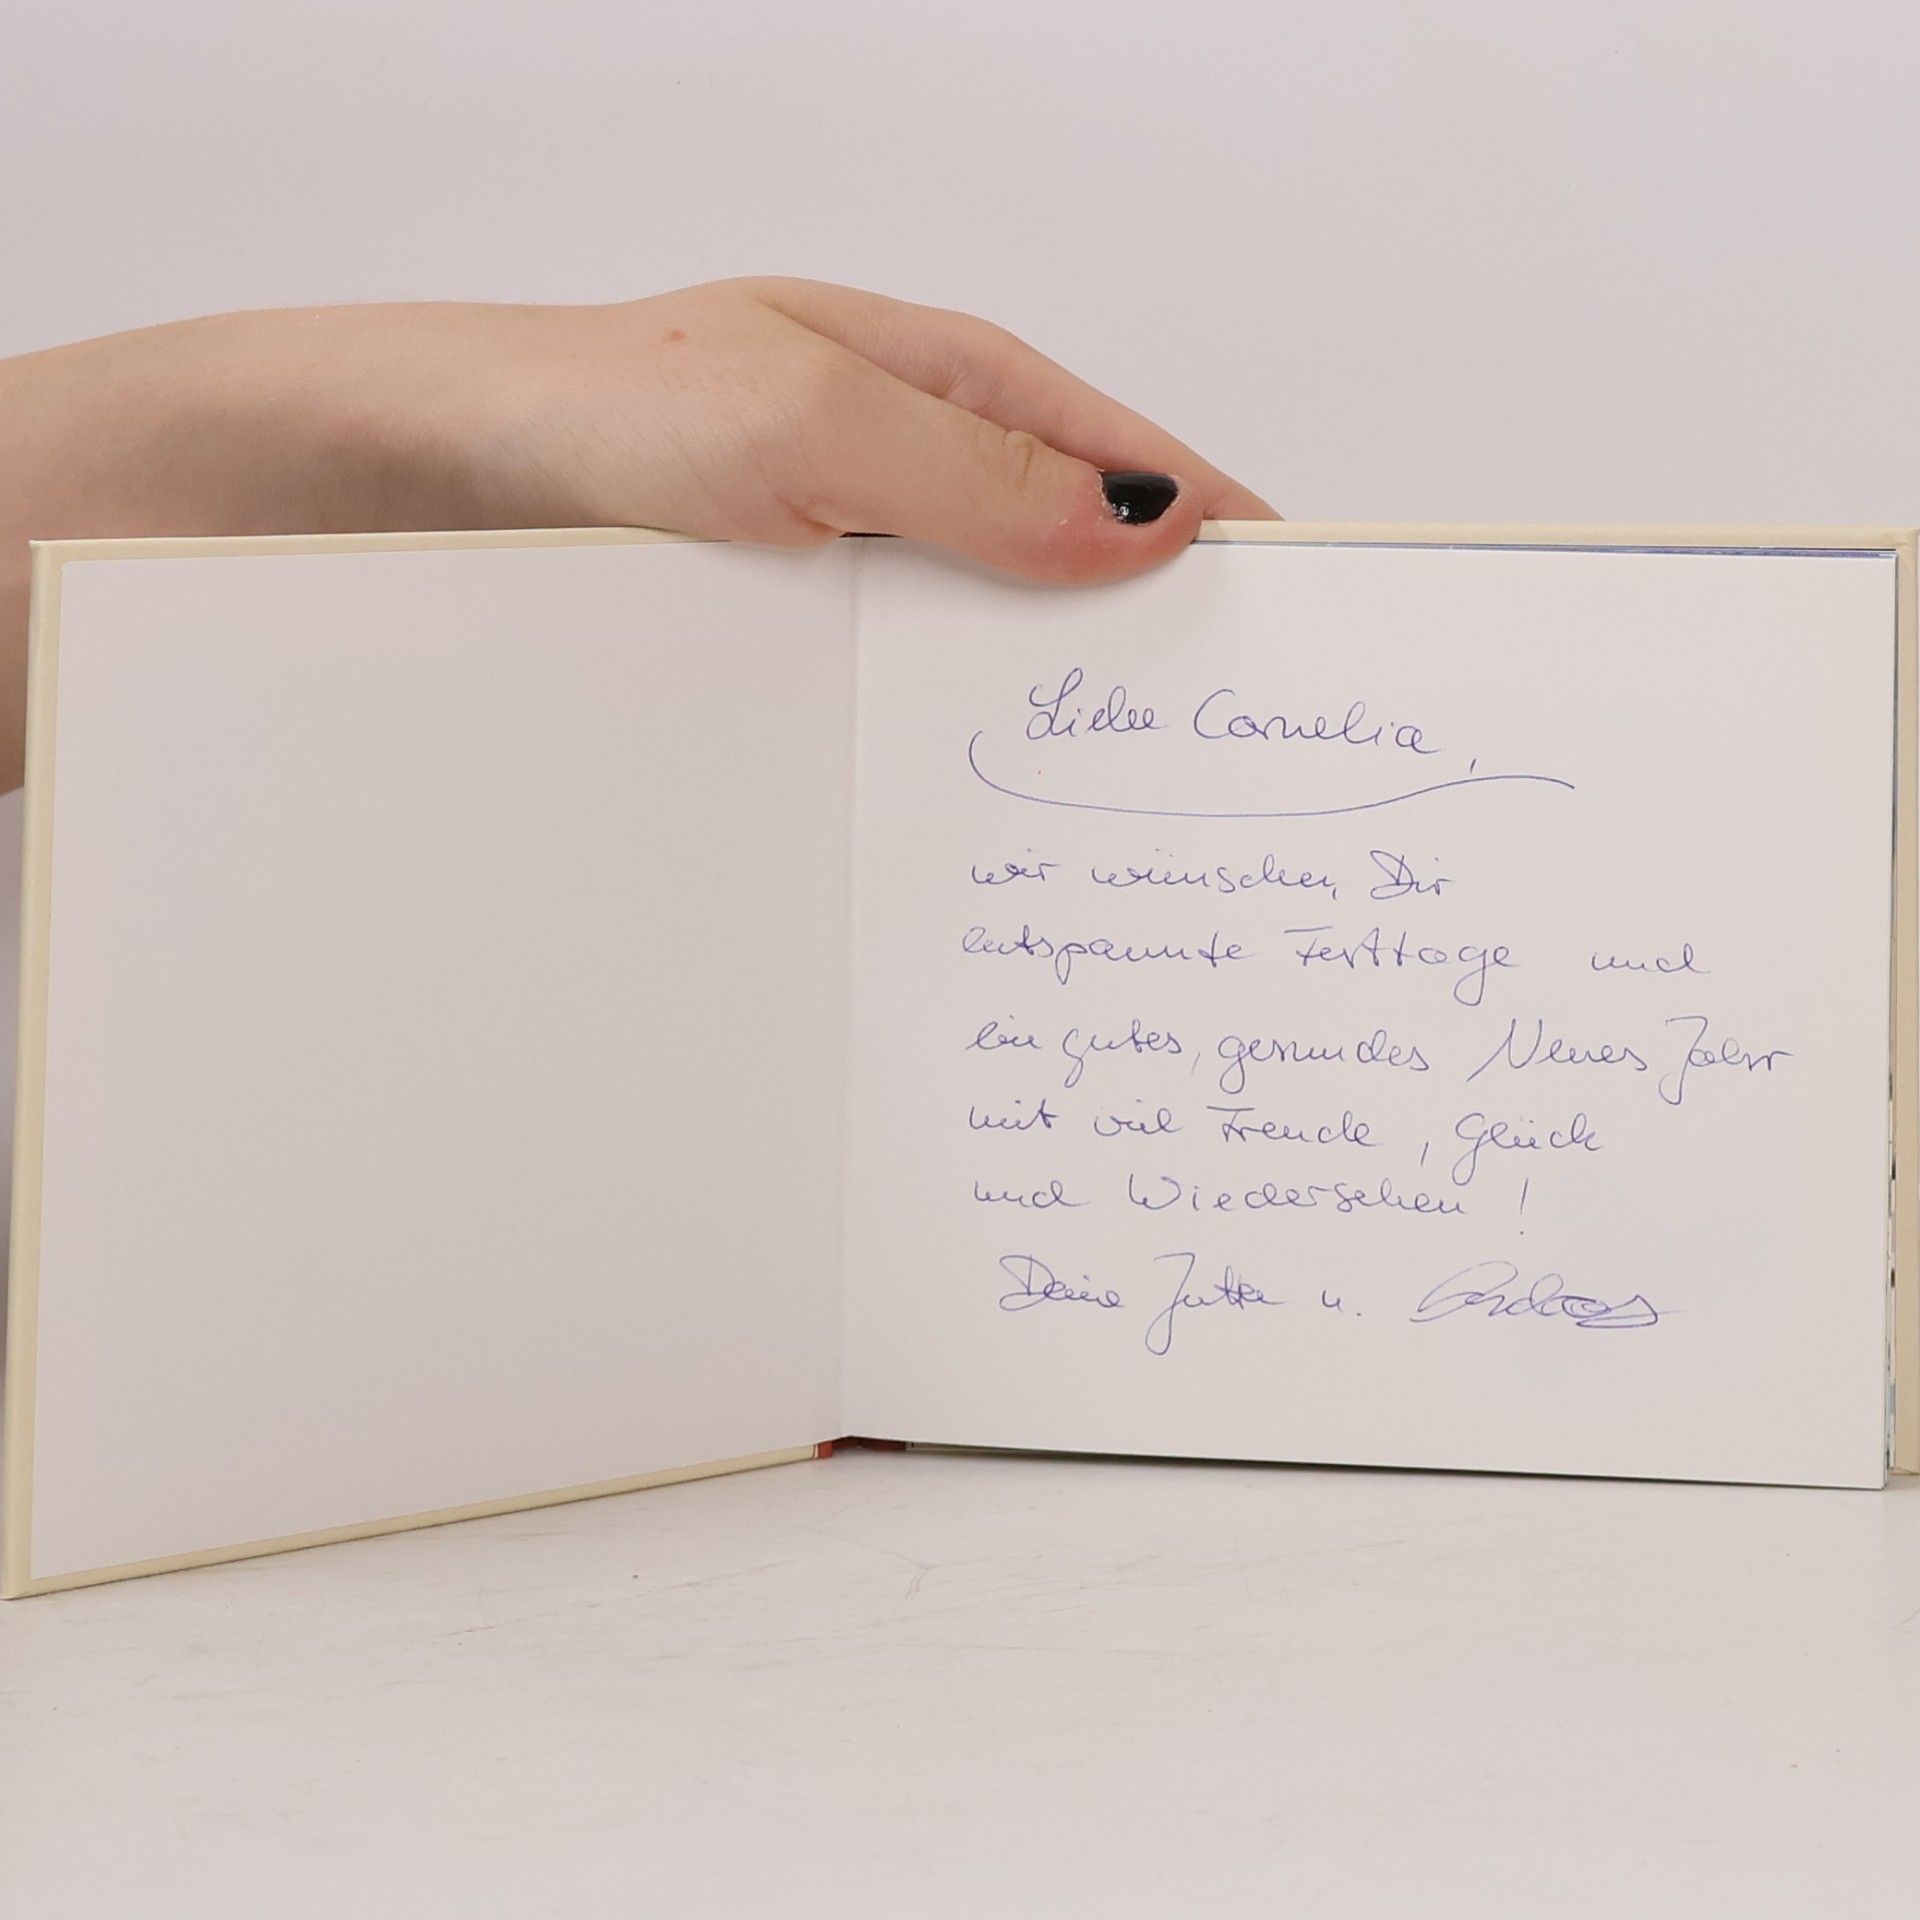 Liebe Cornelia,
wir wünschen Dir
entspannte Festtage und
ein gutes, gesundes Neues Jahr
mit viel Freude, Glück
und Wiedersehen!
Deine Jutta u.